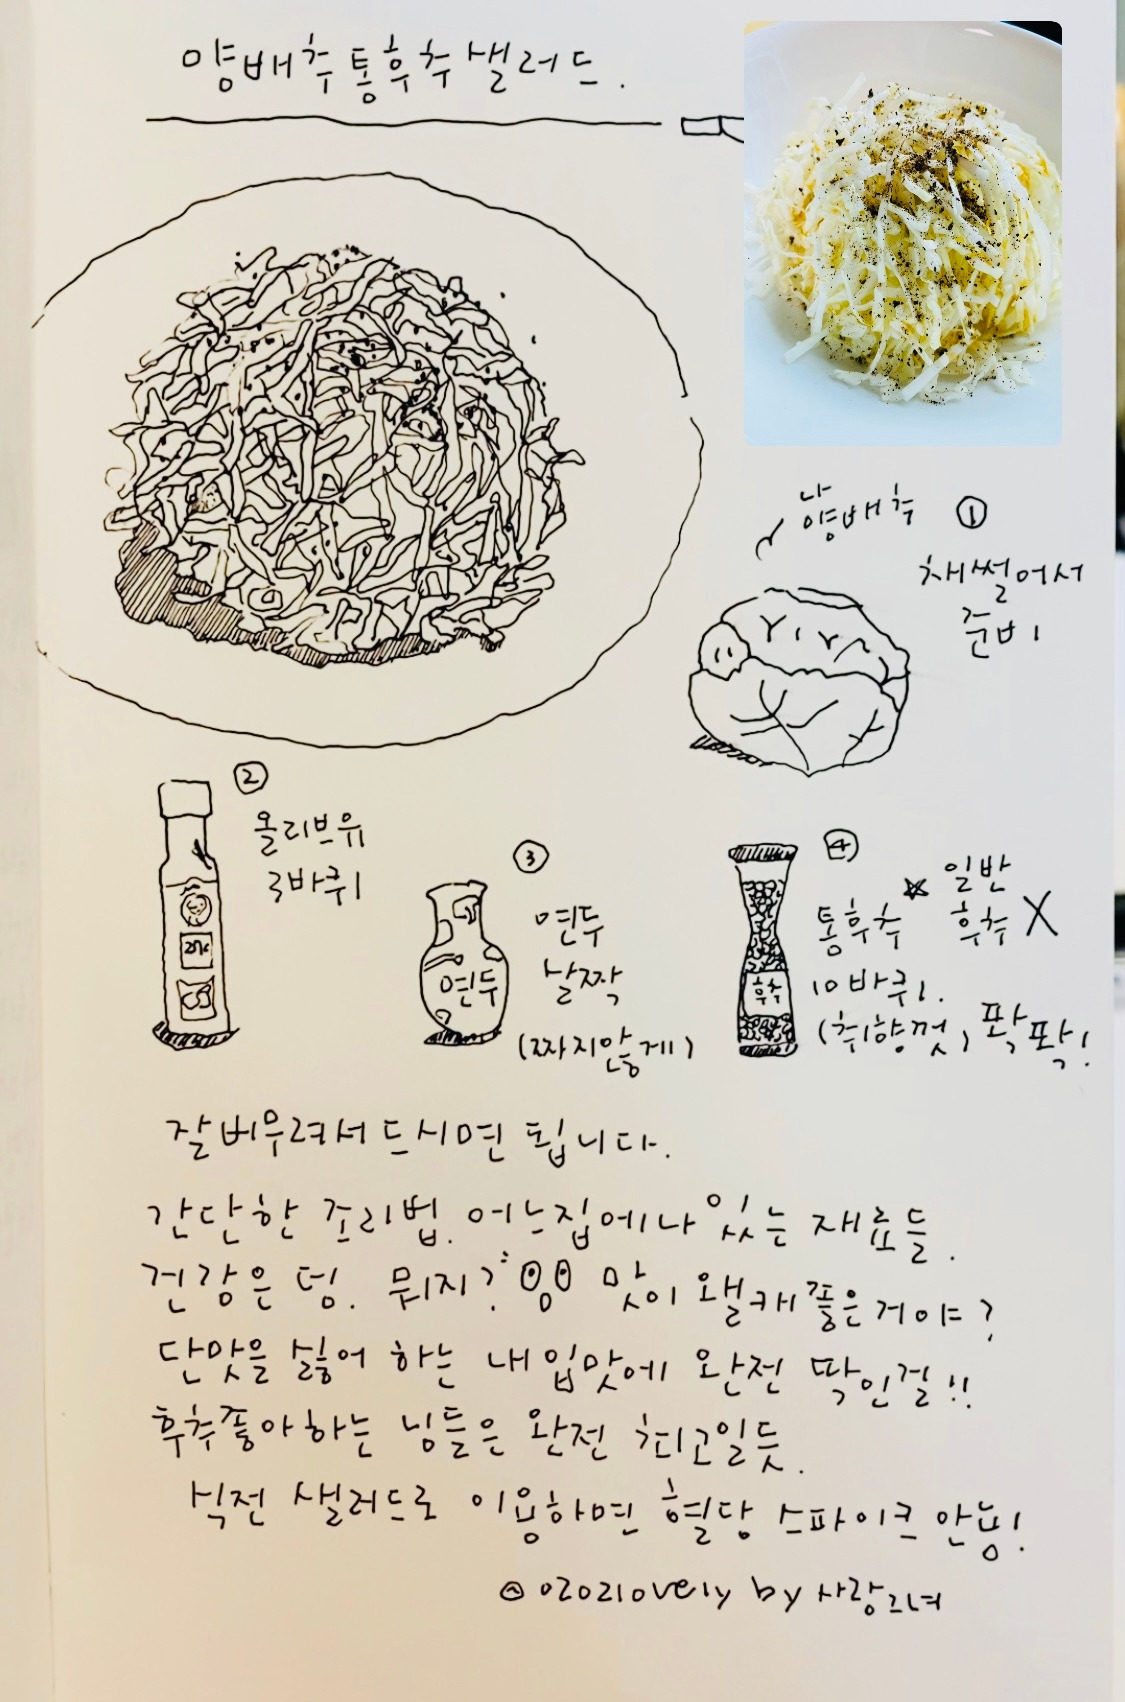 양배추통후추샐러드.
나
양배추 ①
채썰어서
준비
②
올리브유
3바퀴
③
연두
살짝
(짜지않게)
연두
④
통후추 ☆ 일반
후추 X
10바퀴.
(취향껏, 팍팍!
후추
잘 버무려서 드시면 됩니다.
간단한 조리법. 어느집에나 있는 재료들.
건강은 덤. 뭐지? 맛이 왤캐좋은거야?
단맛을 싫어 하는 내입맛에 완전 딱인걸!!
후추좋아하는 닝들은 완전 최고일듯.
식전 샐러드로 이용하면 혈당 스파이크 안뇽!
0202lovely by 사랑그녀